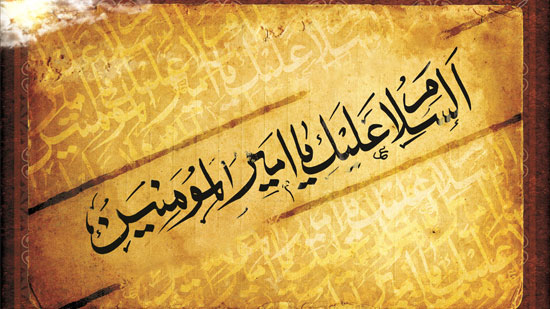 السلام علیك یا امیر المؤمنین